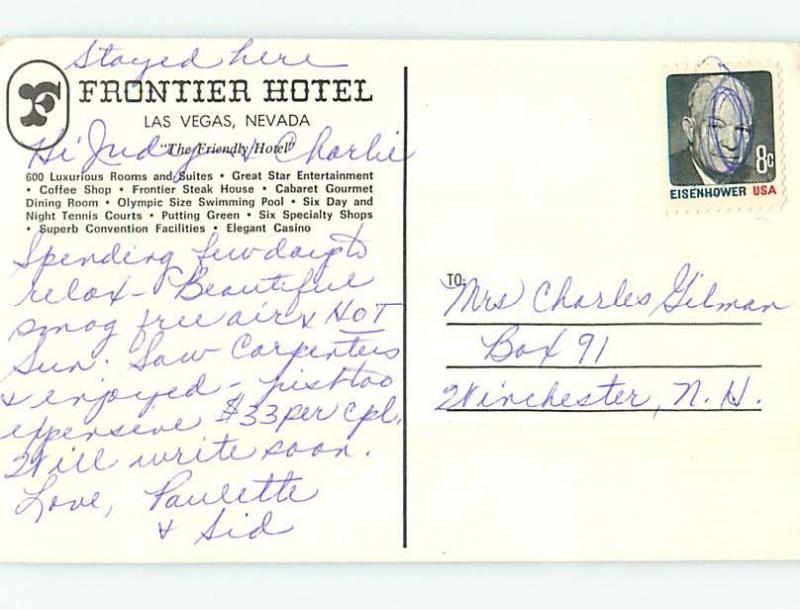 Stayed here
F
FRONTIER HOTEL
LAS VEGAS, NEVADA
"The Friendly Hotel"
Hi Judy & Charlie
600 Luxurious Rooms and Suites • Great Star Entertainment
• Coffee Shop • Frontier Steak House • Cabaret Gourmet
Dining Room • Olympic Size Swimming Pool • Six Day and
Night Tennis Courts • Putting Green • Six Specialty Shops
• Superb Convention Facilities • Elegant Casino
Spending few days to
relax - Beautiful
smog free air & HOT
Sun. Saw Carpenters
& enjoyed - just too
expensive $33 per cpl.
Will write soon.
Love, Paulette
& Sid
8c
EISENHOWER USA
TO:
Mrs Charles Gilman
Box 91
Winchester, N. H.